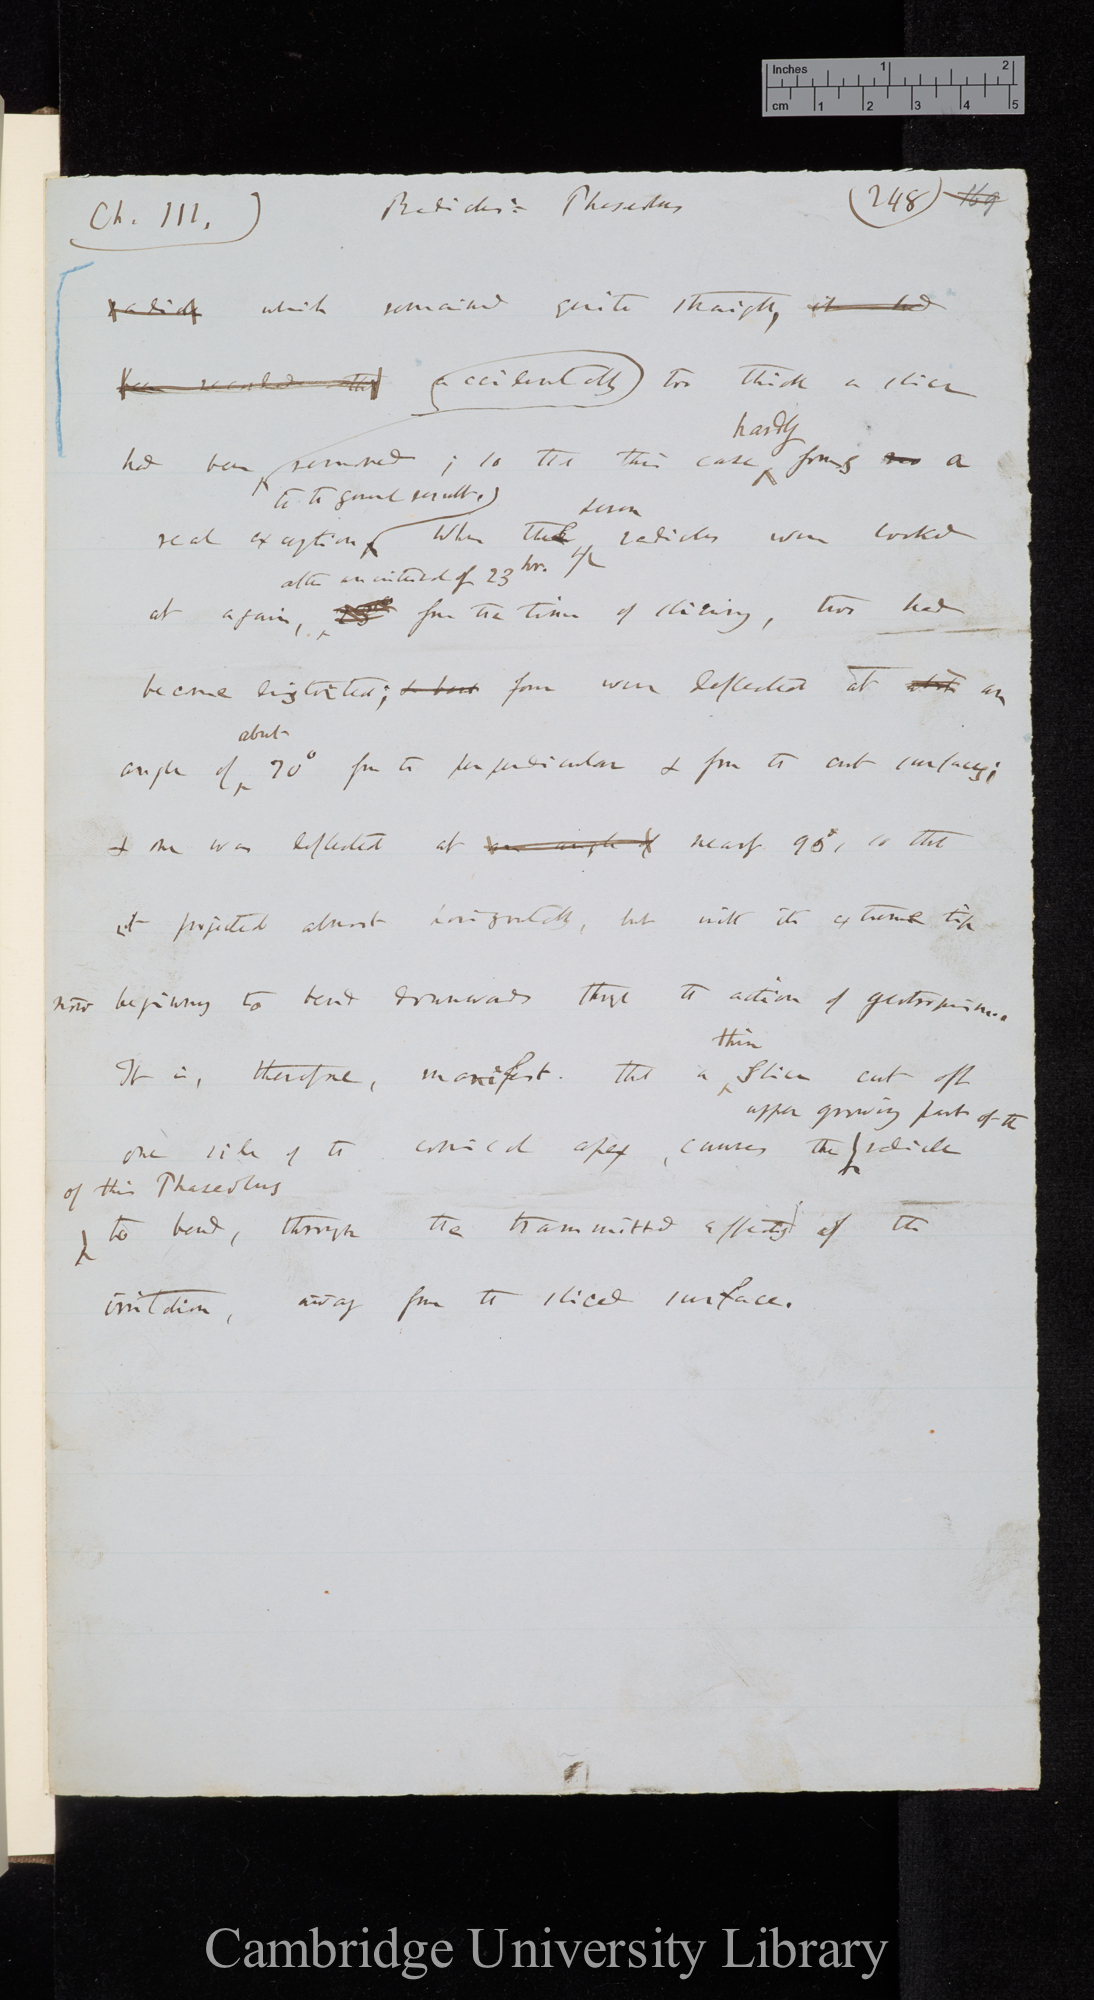 Inches 1 2
cm 1 2 3 4 5
Ch. III.) Radicles: Phaseolus (248) 169
radicle which remained quite straight, it had
been accidentally too thick a slice
hardly
had been removed; so that this case forms no a
to the general result.
seven
real exception. When these radicles were looked
after an interval of 23 hrs.
at again, from the time of slicing, two had
become distorted; four were deflected at about an
about
angle of 70° from the perpendicular & from the cut surface;
& one was deflected at an angle of nearly 90°, so that
it projected almost horizontally, but with its extreme tip
now beginning to bend downwards through the action of geotropism.
thin
It is, therefore, manifest that a slice cut off
upper growing part of the
one side of the conical apex, causes the radicle
of this Phaseolus
to bend, through the transmitted effects of the
irritation, away from the sliced surface.
Cambridge University Library